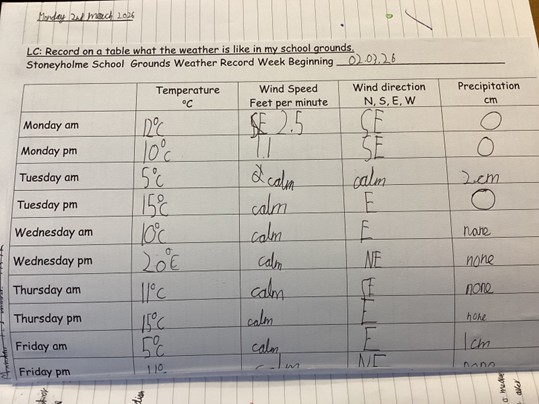 Monday 2nd March 2026
LC: Record on a table what the weather is like in my school grounds.
Stoneyholme School Grounds Weather Record Week Beginning 02.03.26
Temperature °C Wind Speed Feet per minute Wind direction N, S, E, W Precipitation cm
Monday am 12°C 2.5 SE O
Monday pm 10°C 1.1 SE O
Tuesday am 5°C calm calm 2cm
Tuesday pm 15°C calm E O
Wednesday am 10°C calm E none
Wednesday pm 20°C calm NE none
Thursday am 11°C calm none
Thursday pm 15°C calm E none
Friday am 5°C calm E 1cm
Friday pm 11° calm NE none